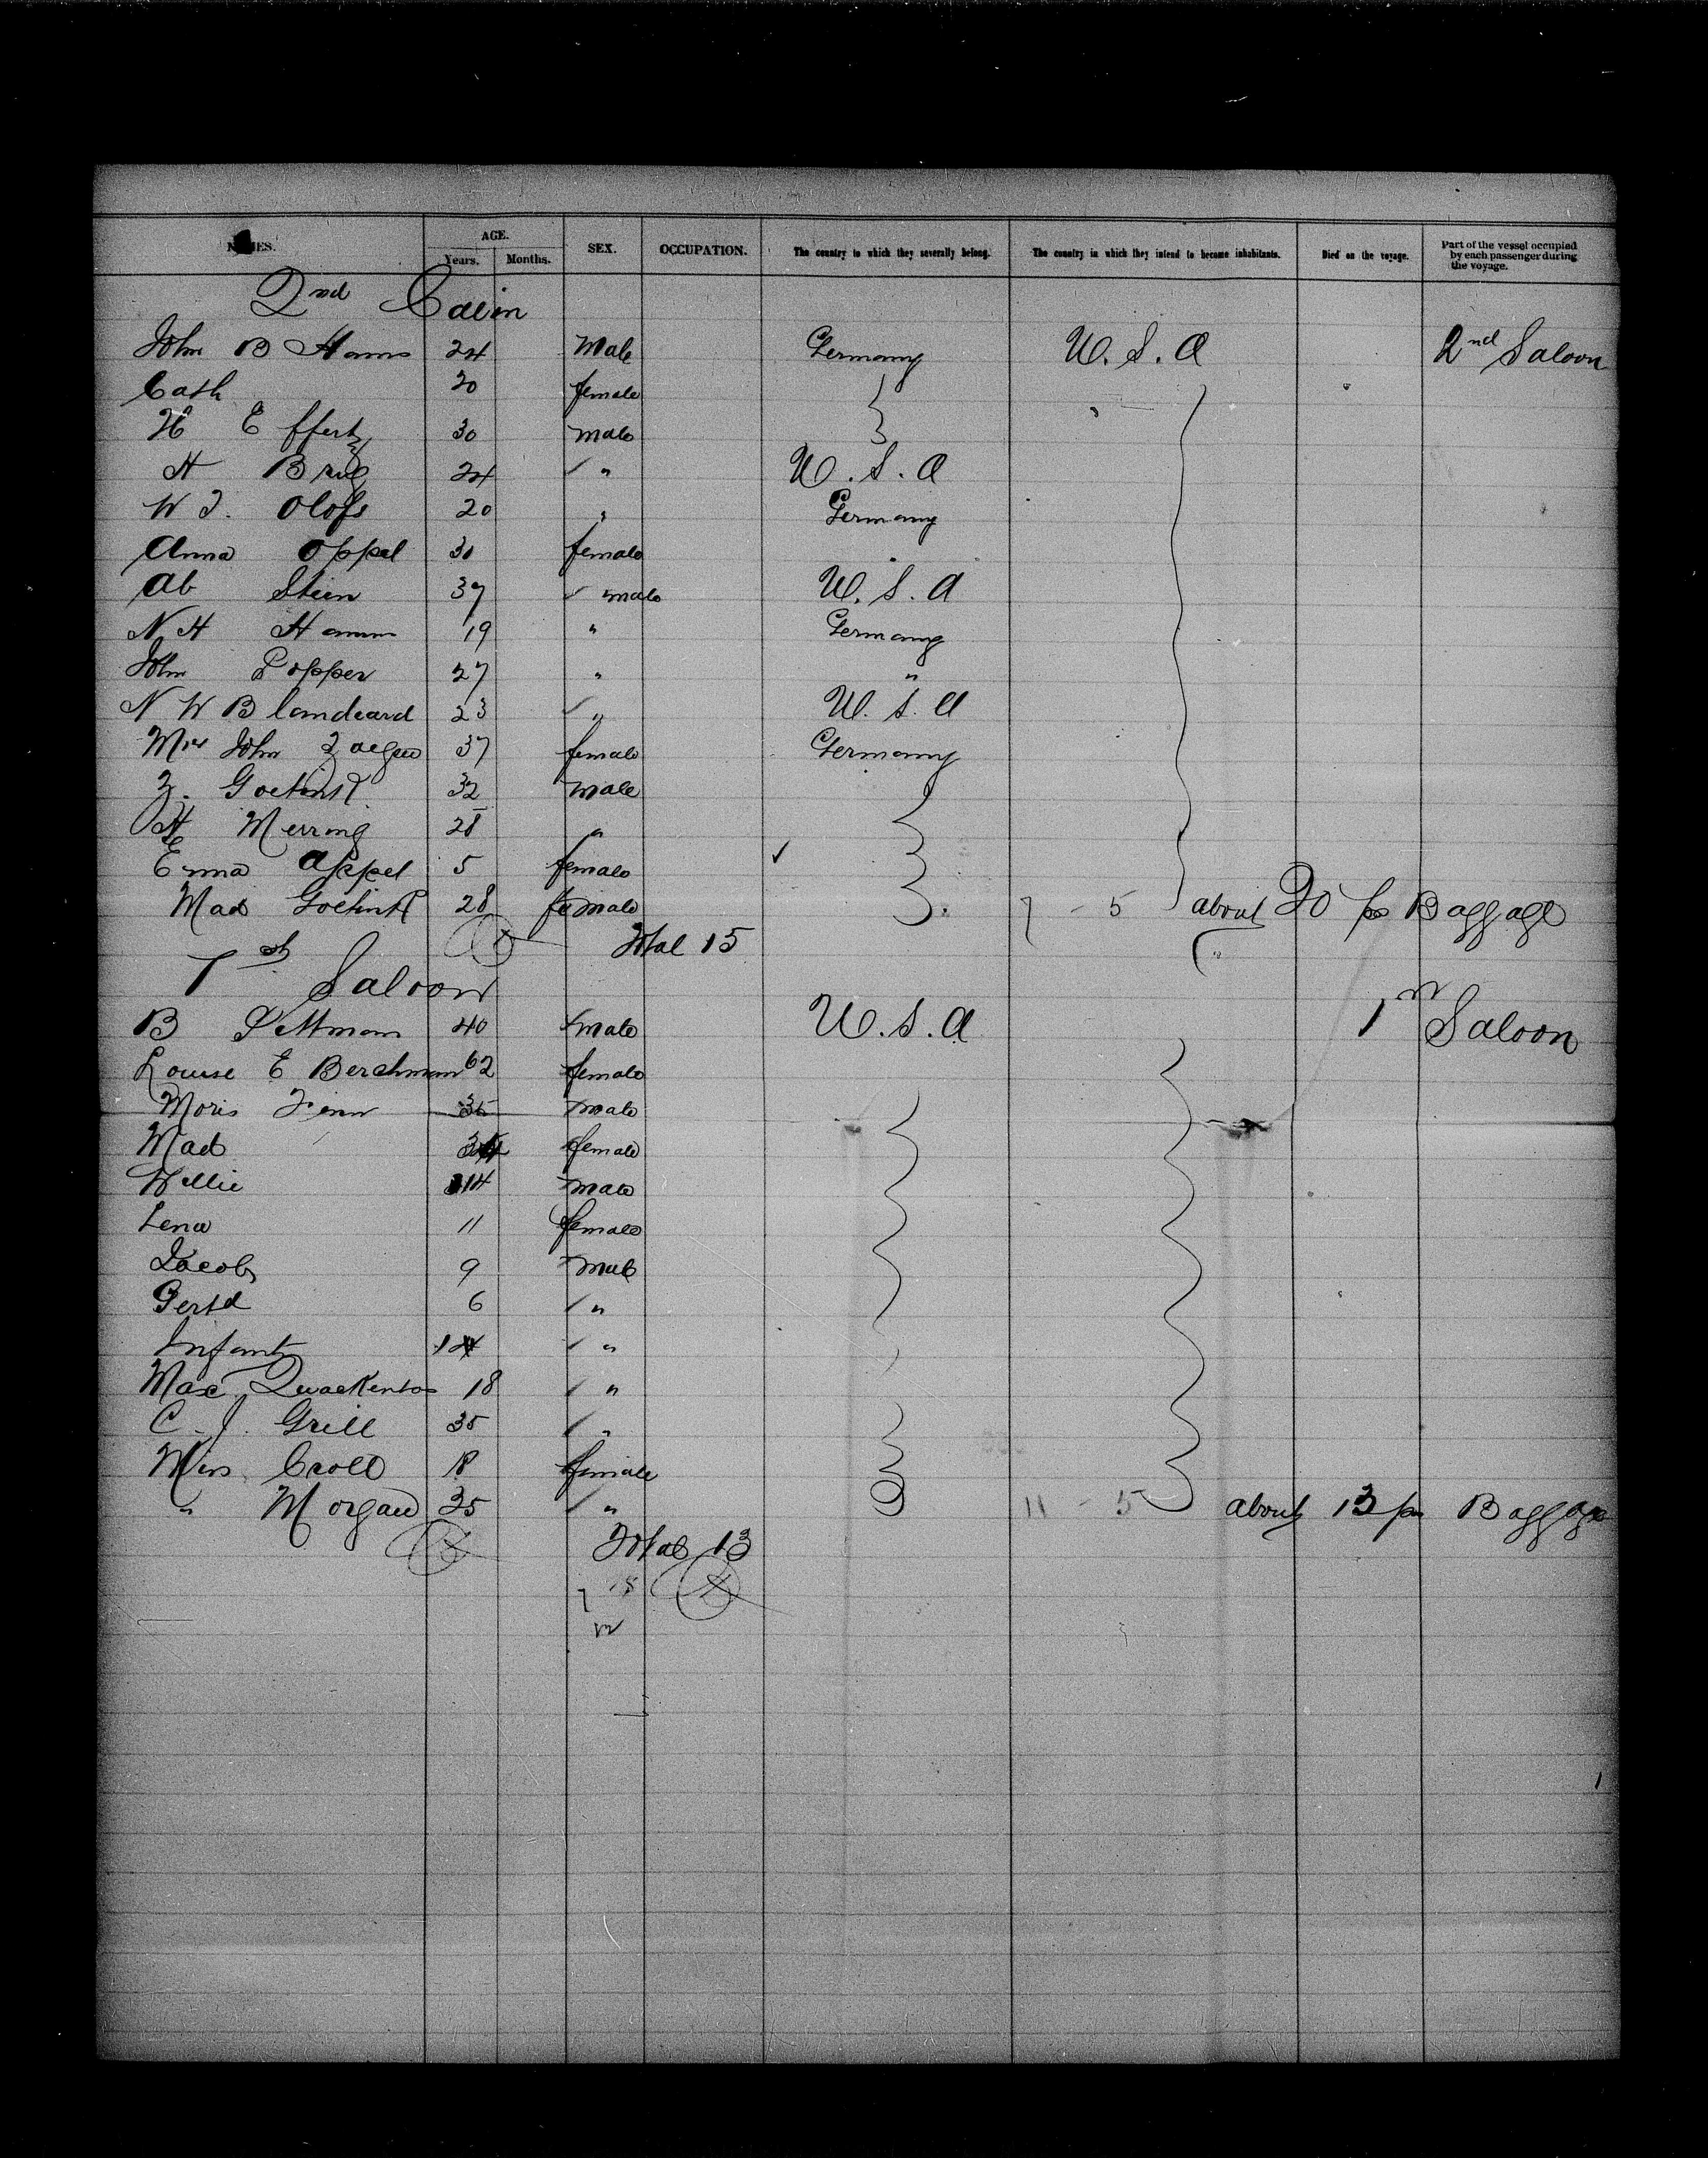 NAMES. AGE. Years. Months. SEX. OCCUPATION. The country to which they severally belong. The country in which they intend to become inhabitants. Died on the voyage. Part of the vessel occupied by each passenger during the voyage.
2nd Cabin
John B Hamm 24 Male Germany U.S.A 2nd Saloon
Cath 20 female
H Effertz 30 male
H 24 " U.S.A
W J. Olofs 20 " Germany
Anna Oppel 30 female "
Ab Stein 37 male U.S.A
N H Hamm 19 " Germany
John Popper 27 " "
N W Blandeard 23 " U.S.A
Mrs John 37 female Germany
Z. Goetink 32 male
H Merring 28 "
Erna Appel 5 female
Mad Goetink 28 female 7 - 5 about 20 ps Baggage
Total 15
1st Saloon
B 40 male U.S.A 1st Saloon
Louise E Berchmam 62 female
Moris 35 male
Mad 34 female
Willie 14 male
Lena 11 female
Jacob 9 male
Gertd 6 "
Infant "
Max Quackenbos 18 "
C. J. Grill 35 "
Miss Croll 18 female
" Morgan 35 " 11 - 5 about 13 ps Baggage
Total 13